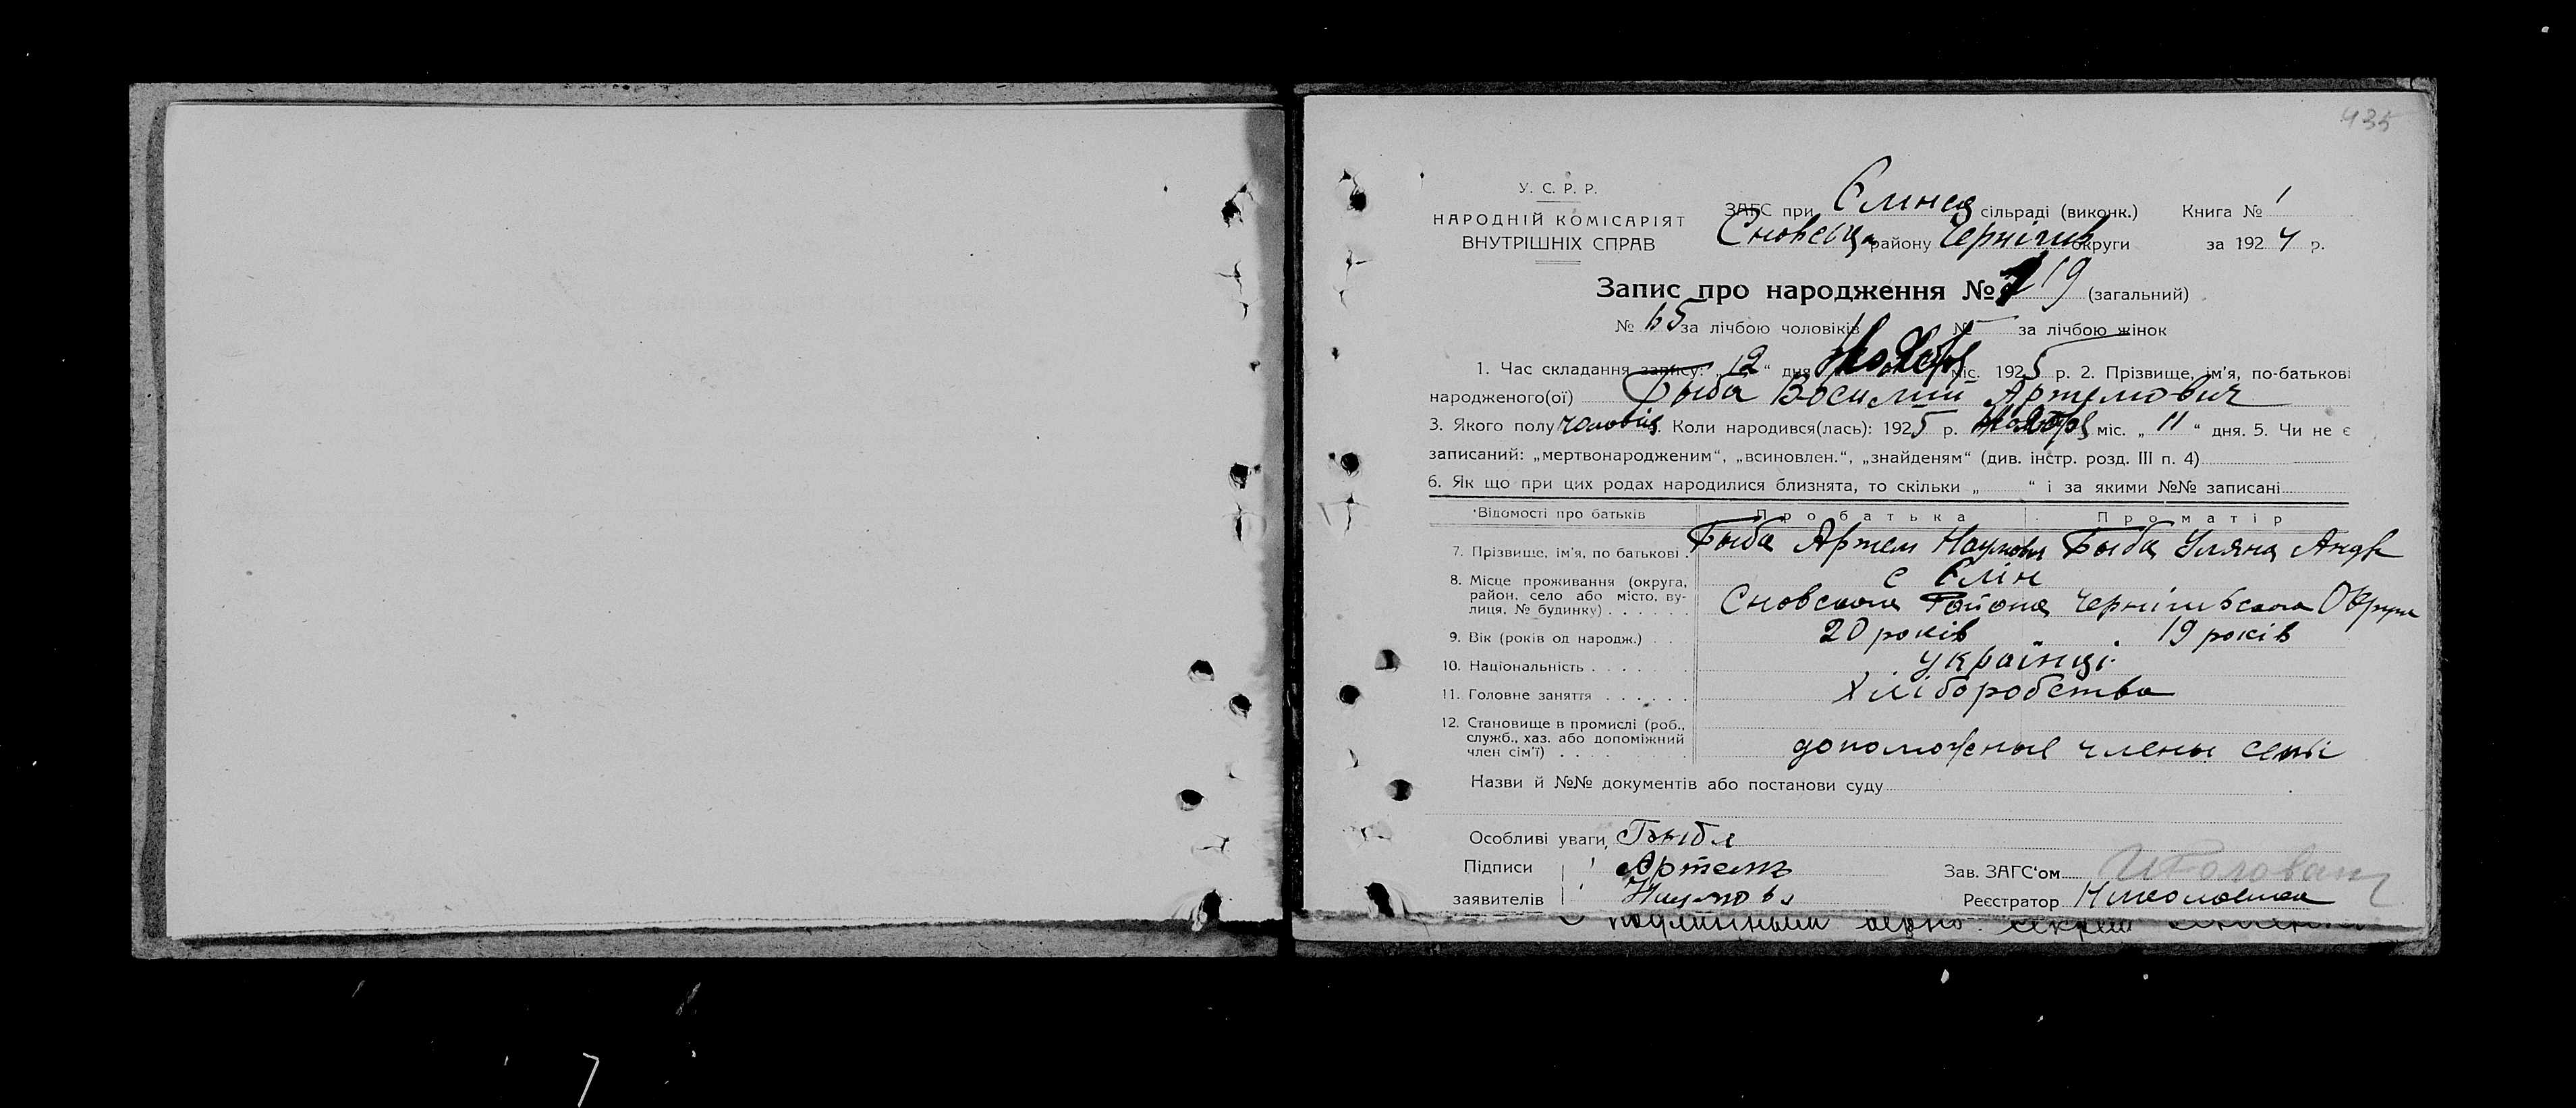 435
У. С. Р. Р.
НАРОДНІЙ КОМІСАРІЯТ
ВНУТРІШНІХ СПРАВ
ЗАГС при Єлінск сільраді (виконк.) Книга № 1
Сновськ району Чернігів округи за 1924 р.
Запис про народження № 119 (загальний)
№ 65 за лічбою чоловіків № — за лічбою жінок
1. Час складання запису: „12“ дня Ноября міс. 1925 р. 2. Прізвище, ім'я, по-батькові
народженого(ої) Рыба Василий Артемович
3. Якого полу чоловіч. Коли народився(лась): 1925 р. Ноября міс. „11“ дня. 5. Чи не є
записаний: „мертвонародженим“, „всиновлен.“, „знайденям“ (див. інстр. розд. III п. 4)
6. Як що при цих родах народилися близнята, то скільки „ “ і за якими №№ записані
Відомості про батьків Про батька Про матір
7. Прізвище, ім'я, по батькові. Рыба Артем Наумович Рыба Уляна Андр
8. Місце проживання (округа, район, село або місто, ву-
лиця, № будинку) с Єлін
Сновского Района Чернігівского Округи
9. Вік (років од народж.) 20 років 19 років
10. Національність українці
11. Головне заняття хліборобства
12. Становище в промислі (роб.,
служб., хаз. або допоміжний
член сім'ї) допоможные члены семі
Назви й №№ документів або постанови суду
Особливі уваги Рыба
Підписи Артемъ Зав. ЗАГС'ом
заявителів Наумовъ Реєстратор